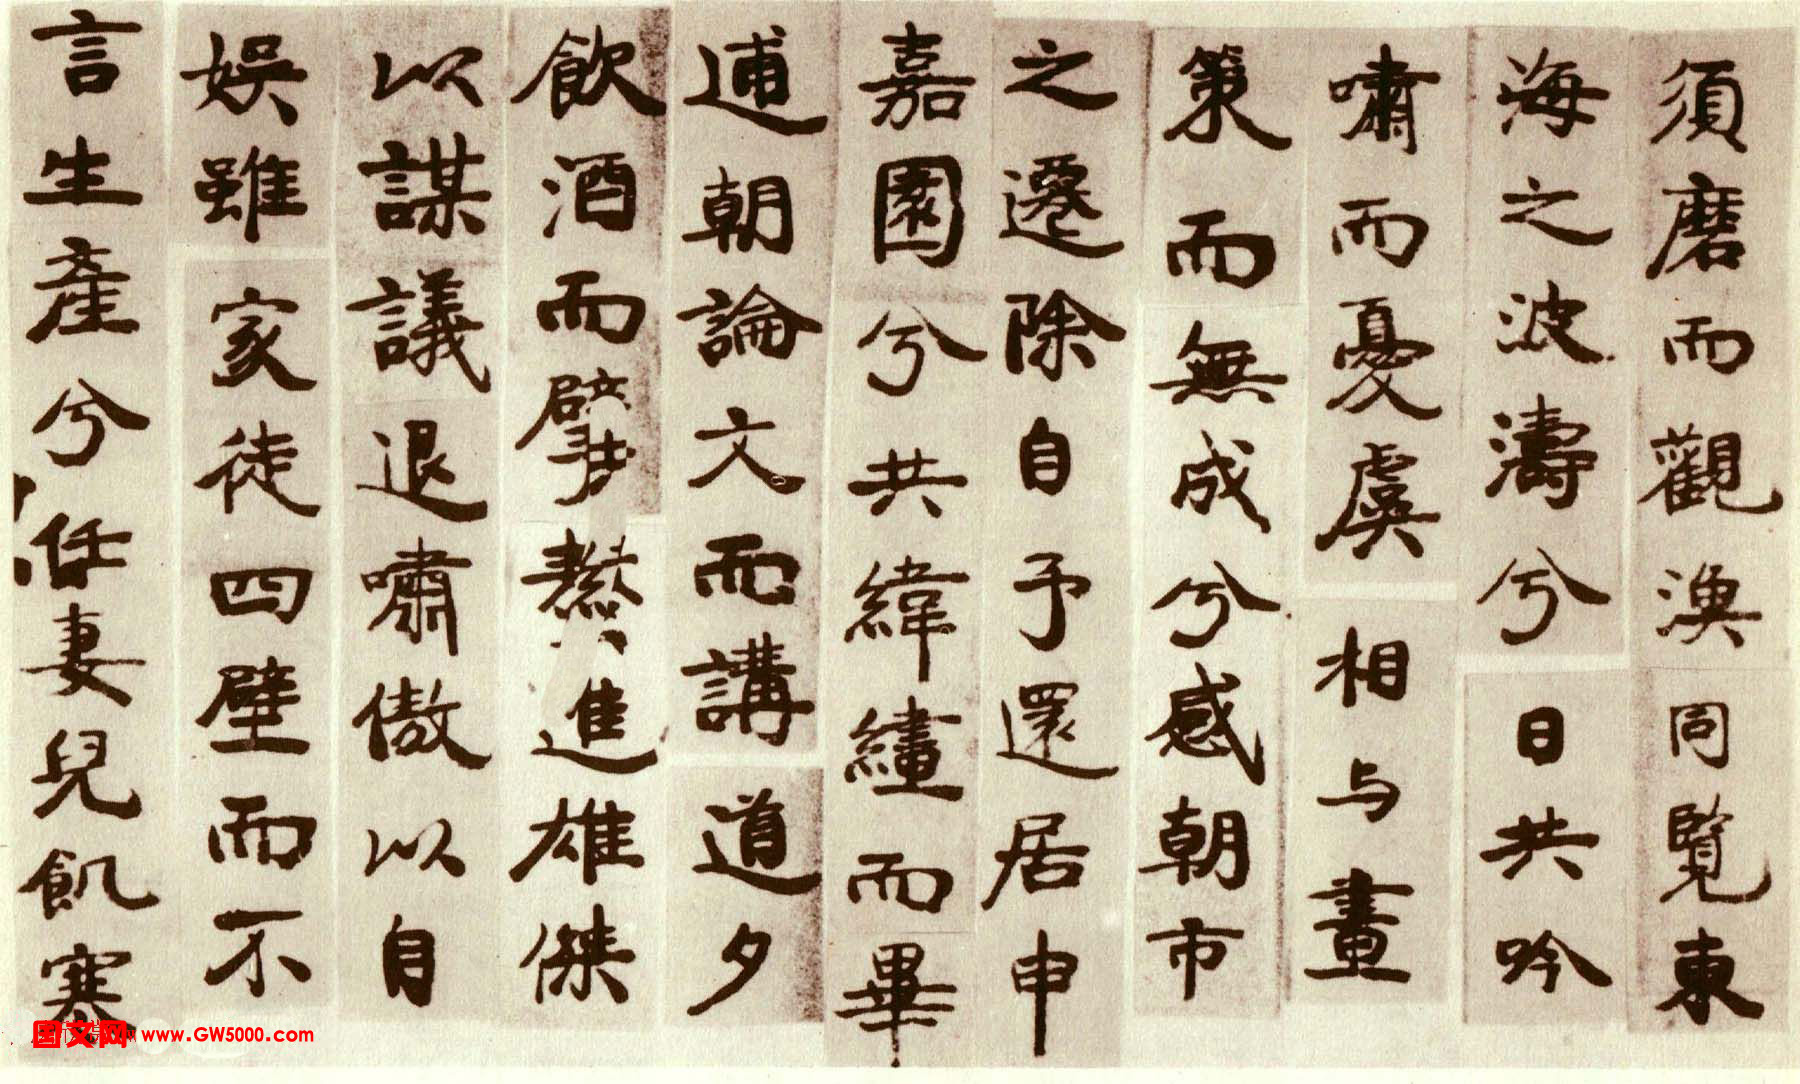 須磨而觀漁同覽東
海之波濤兮日共吟
嘯而憂虞相与畫
策而無成兮感朝市
之遷除自予還居申
嘉園兮共緯繣而畢
逋朝論文而講道夕
飲酒而擘蟹進雄傑
以謀議退嘯傲以自
娛雖家徒四壁而不
言生產兮任妻兒飢寒
国文网 www.GW5000.com